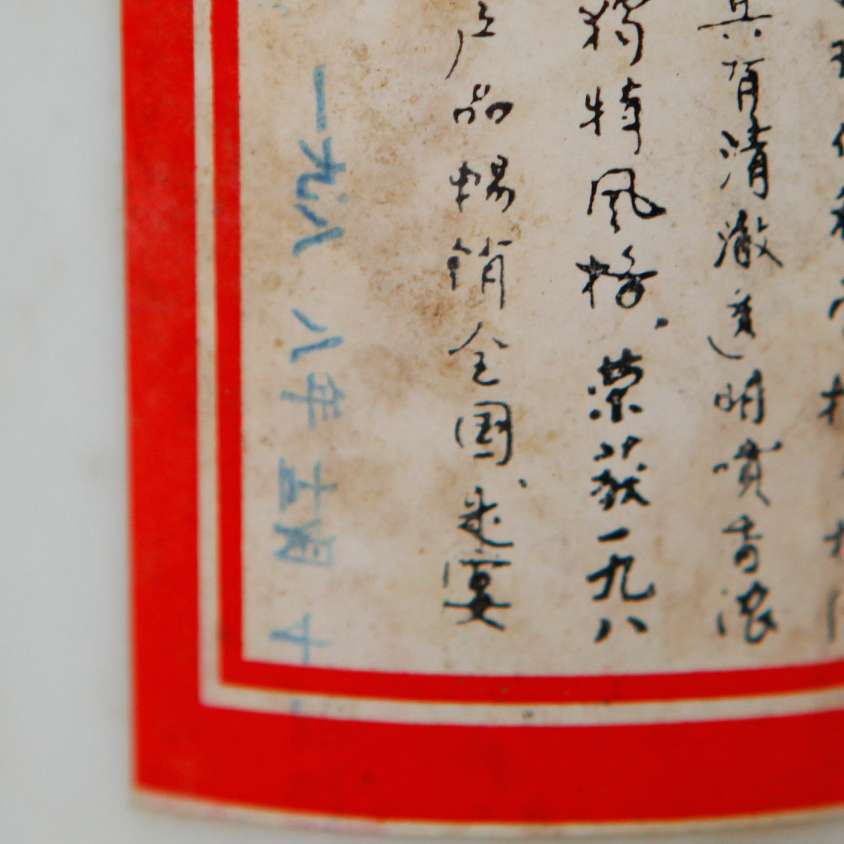 具有清澈透明喷香浓
独特风格、荣获一九八
产品畅销全国、是宴
一九八八年五月十